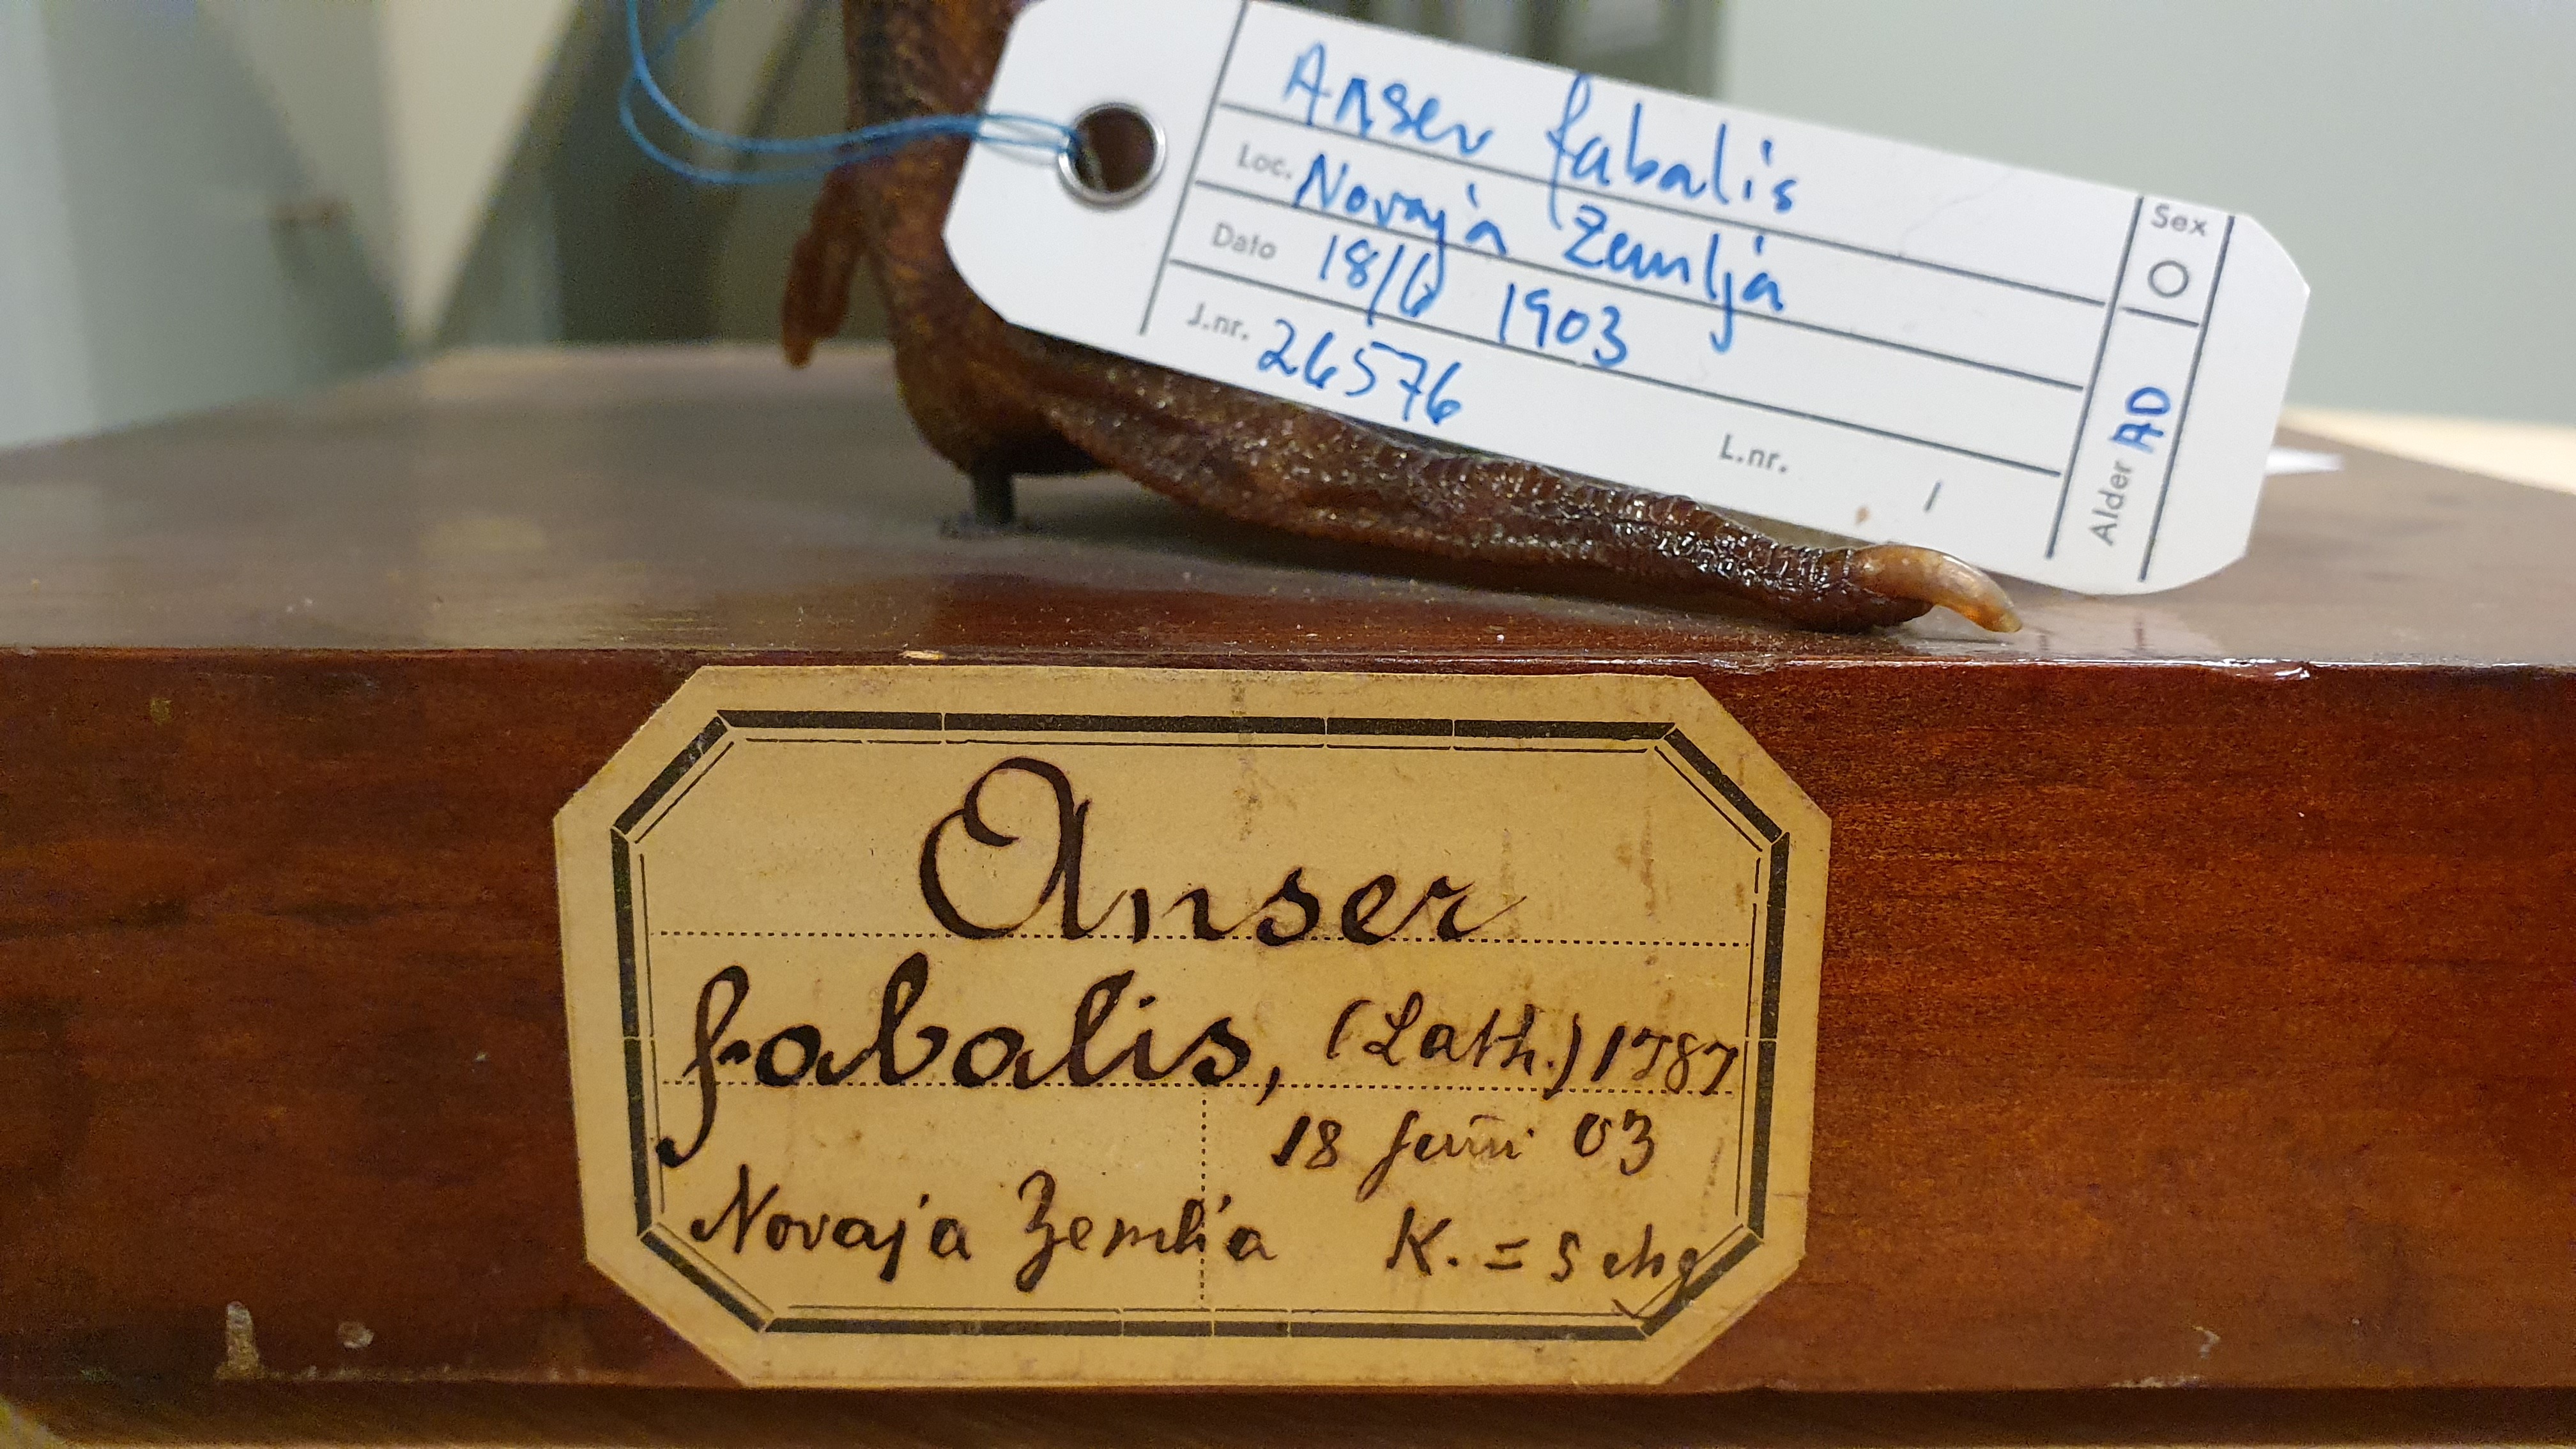 Anser fabalis
Loc. Novaja Zemlja
Dato 18/6 1903
J.nr. 26576
L.nr. /
Sex O
Alder AD
Anser
fabalis, (Lath.) 1787
18 Juni 03
Novaja Zemlia K. =